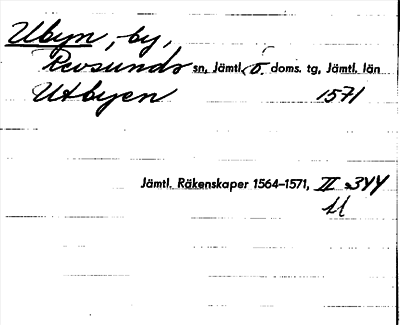 Ubyn, by,
Revsunds sn, Jämtl. ö. doms. tg, Jämtl. län
Utbyen 1571
Jämtl. Räkenskaper 1564–1571, II s. 344